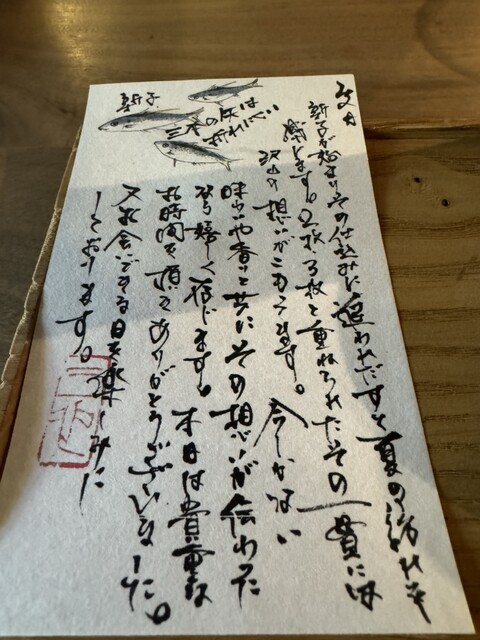 文月
新子が始まりその仕込みに追われだすと夏の訪れを
感じます。2枚、3枚と重ねられたその一貫には
沢山の想いがこもってます。今しかない
味わいや香りと共にその想いが伝わった
なら嬉しく存じます。本日は貴重な
お時間を頂きありがとうございました。
又お会いできる日を楽しみに
しております。
新子
三本の矢は
折れにくい